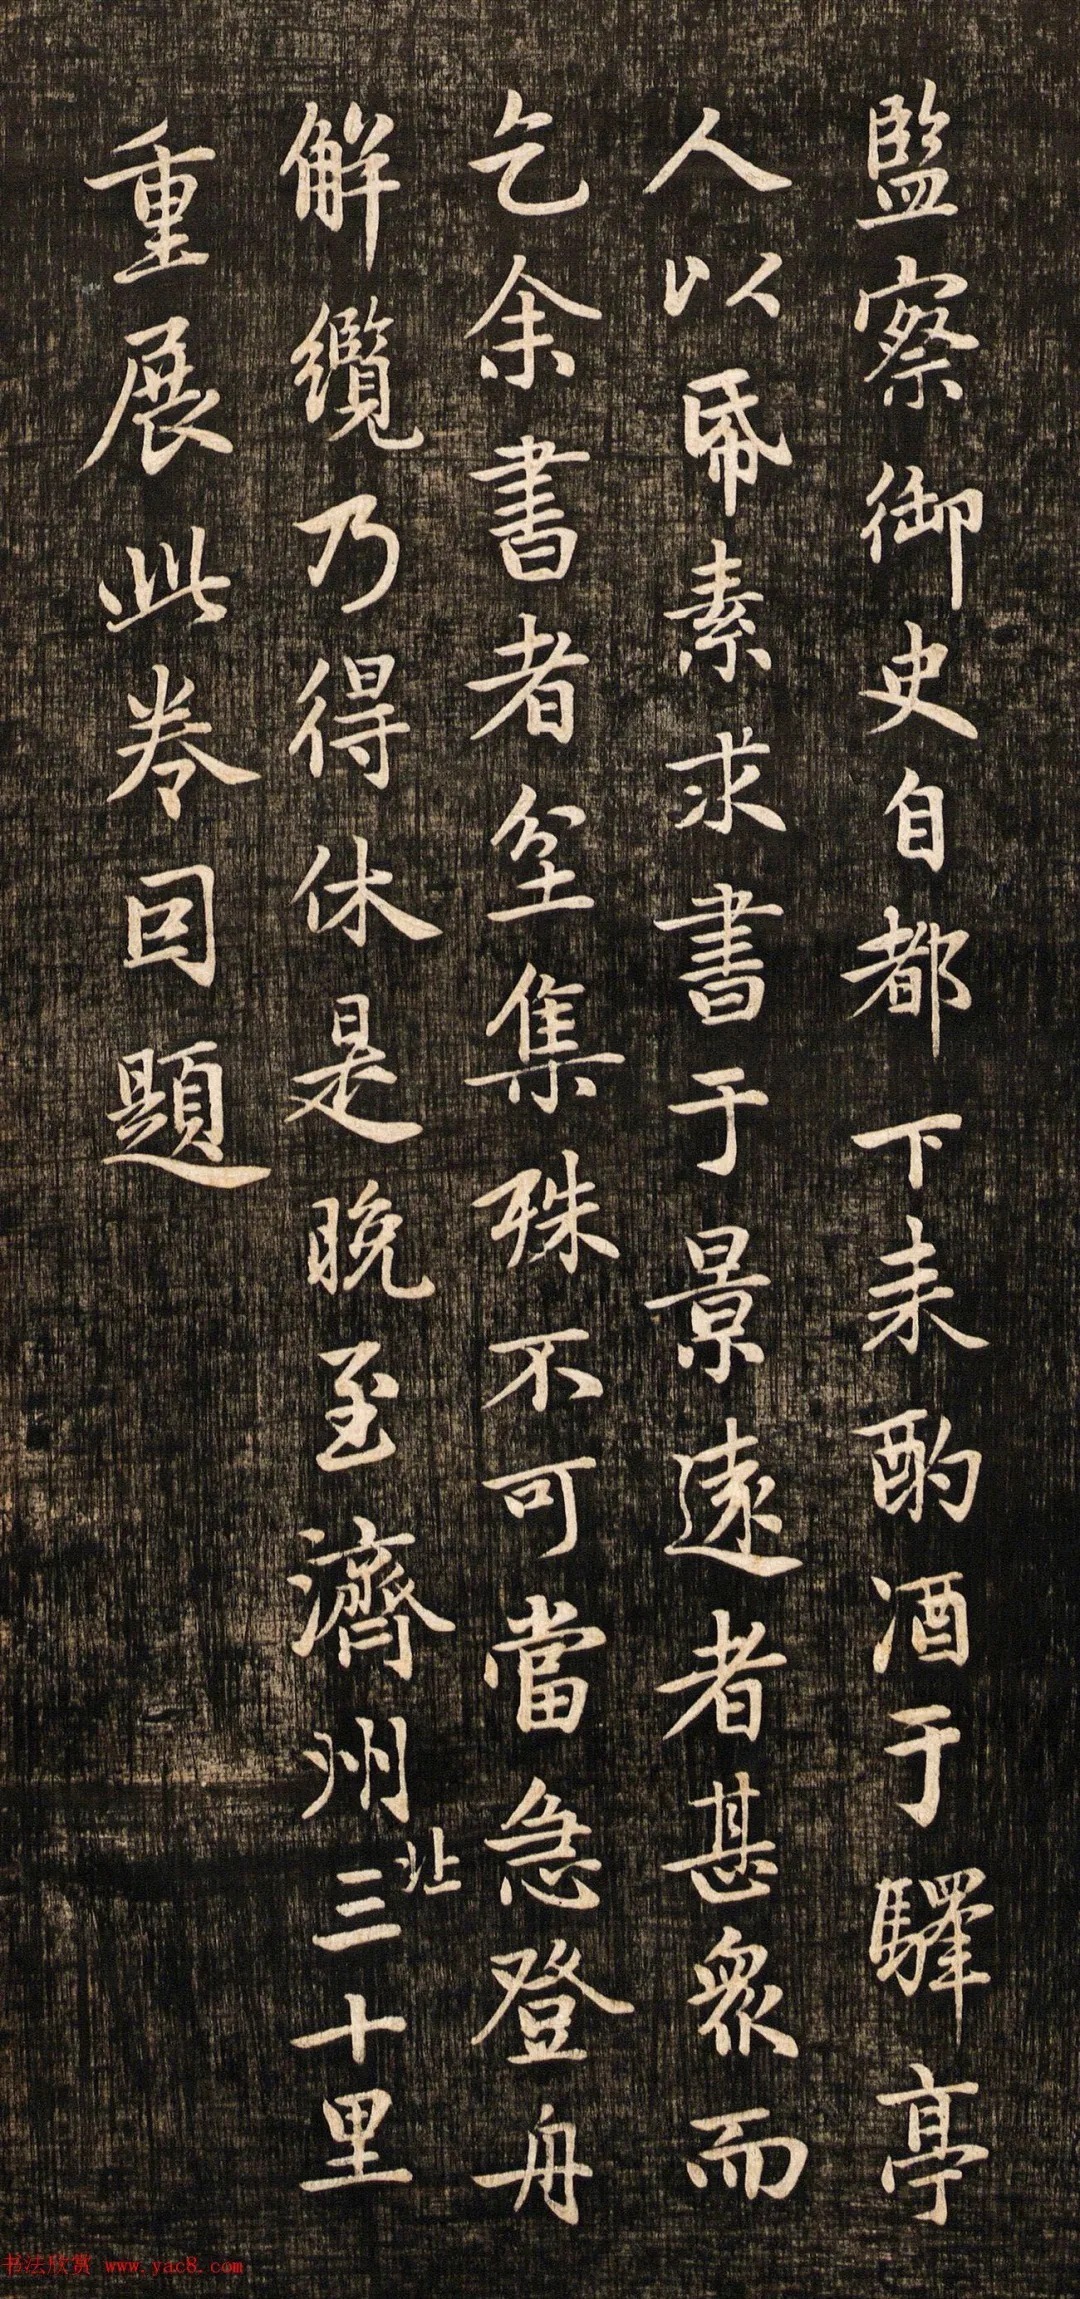 監察御史自都下来酌酒于驛亭
人以帋素求書于景遠者甚衆而
乞余書者坌集殊不可當急登舟
解纜乃得休是晚至濟州北三十里
重展此卷因題
书法欣赏 www.yac8.com